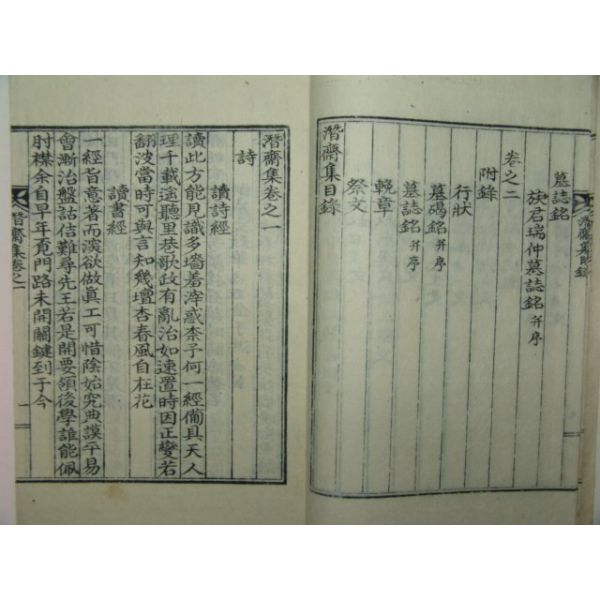 墓誌銘
族君瑞仲墓誌銘并序
卷之二
附錄
行狀
墓碣銘并序
墓誌銘并序
輓章
祭文
潛齋集目錄
潛齋集目錄
潛齋集卷之一
詩
讀詩經
讀此方能見識多墻着滓惑柰子何一經備具天人
理千載途聽里巷歌政有亂治如速置時因正變若
翻波當時可與言知幾壇杏春風自在花
讀書經
一經旨意著而深欲做眞工可惜陰始究典謨平易
會漸治盤誥信難尋先王若是開要領後學誰能佩
肘樑余自早年覓門路未開關鍵到于今
潛齋集卷之一
一